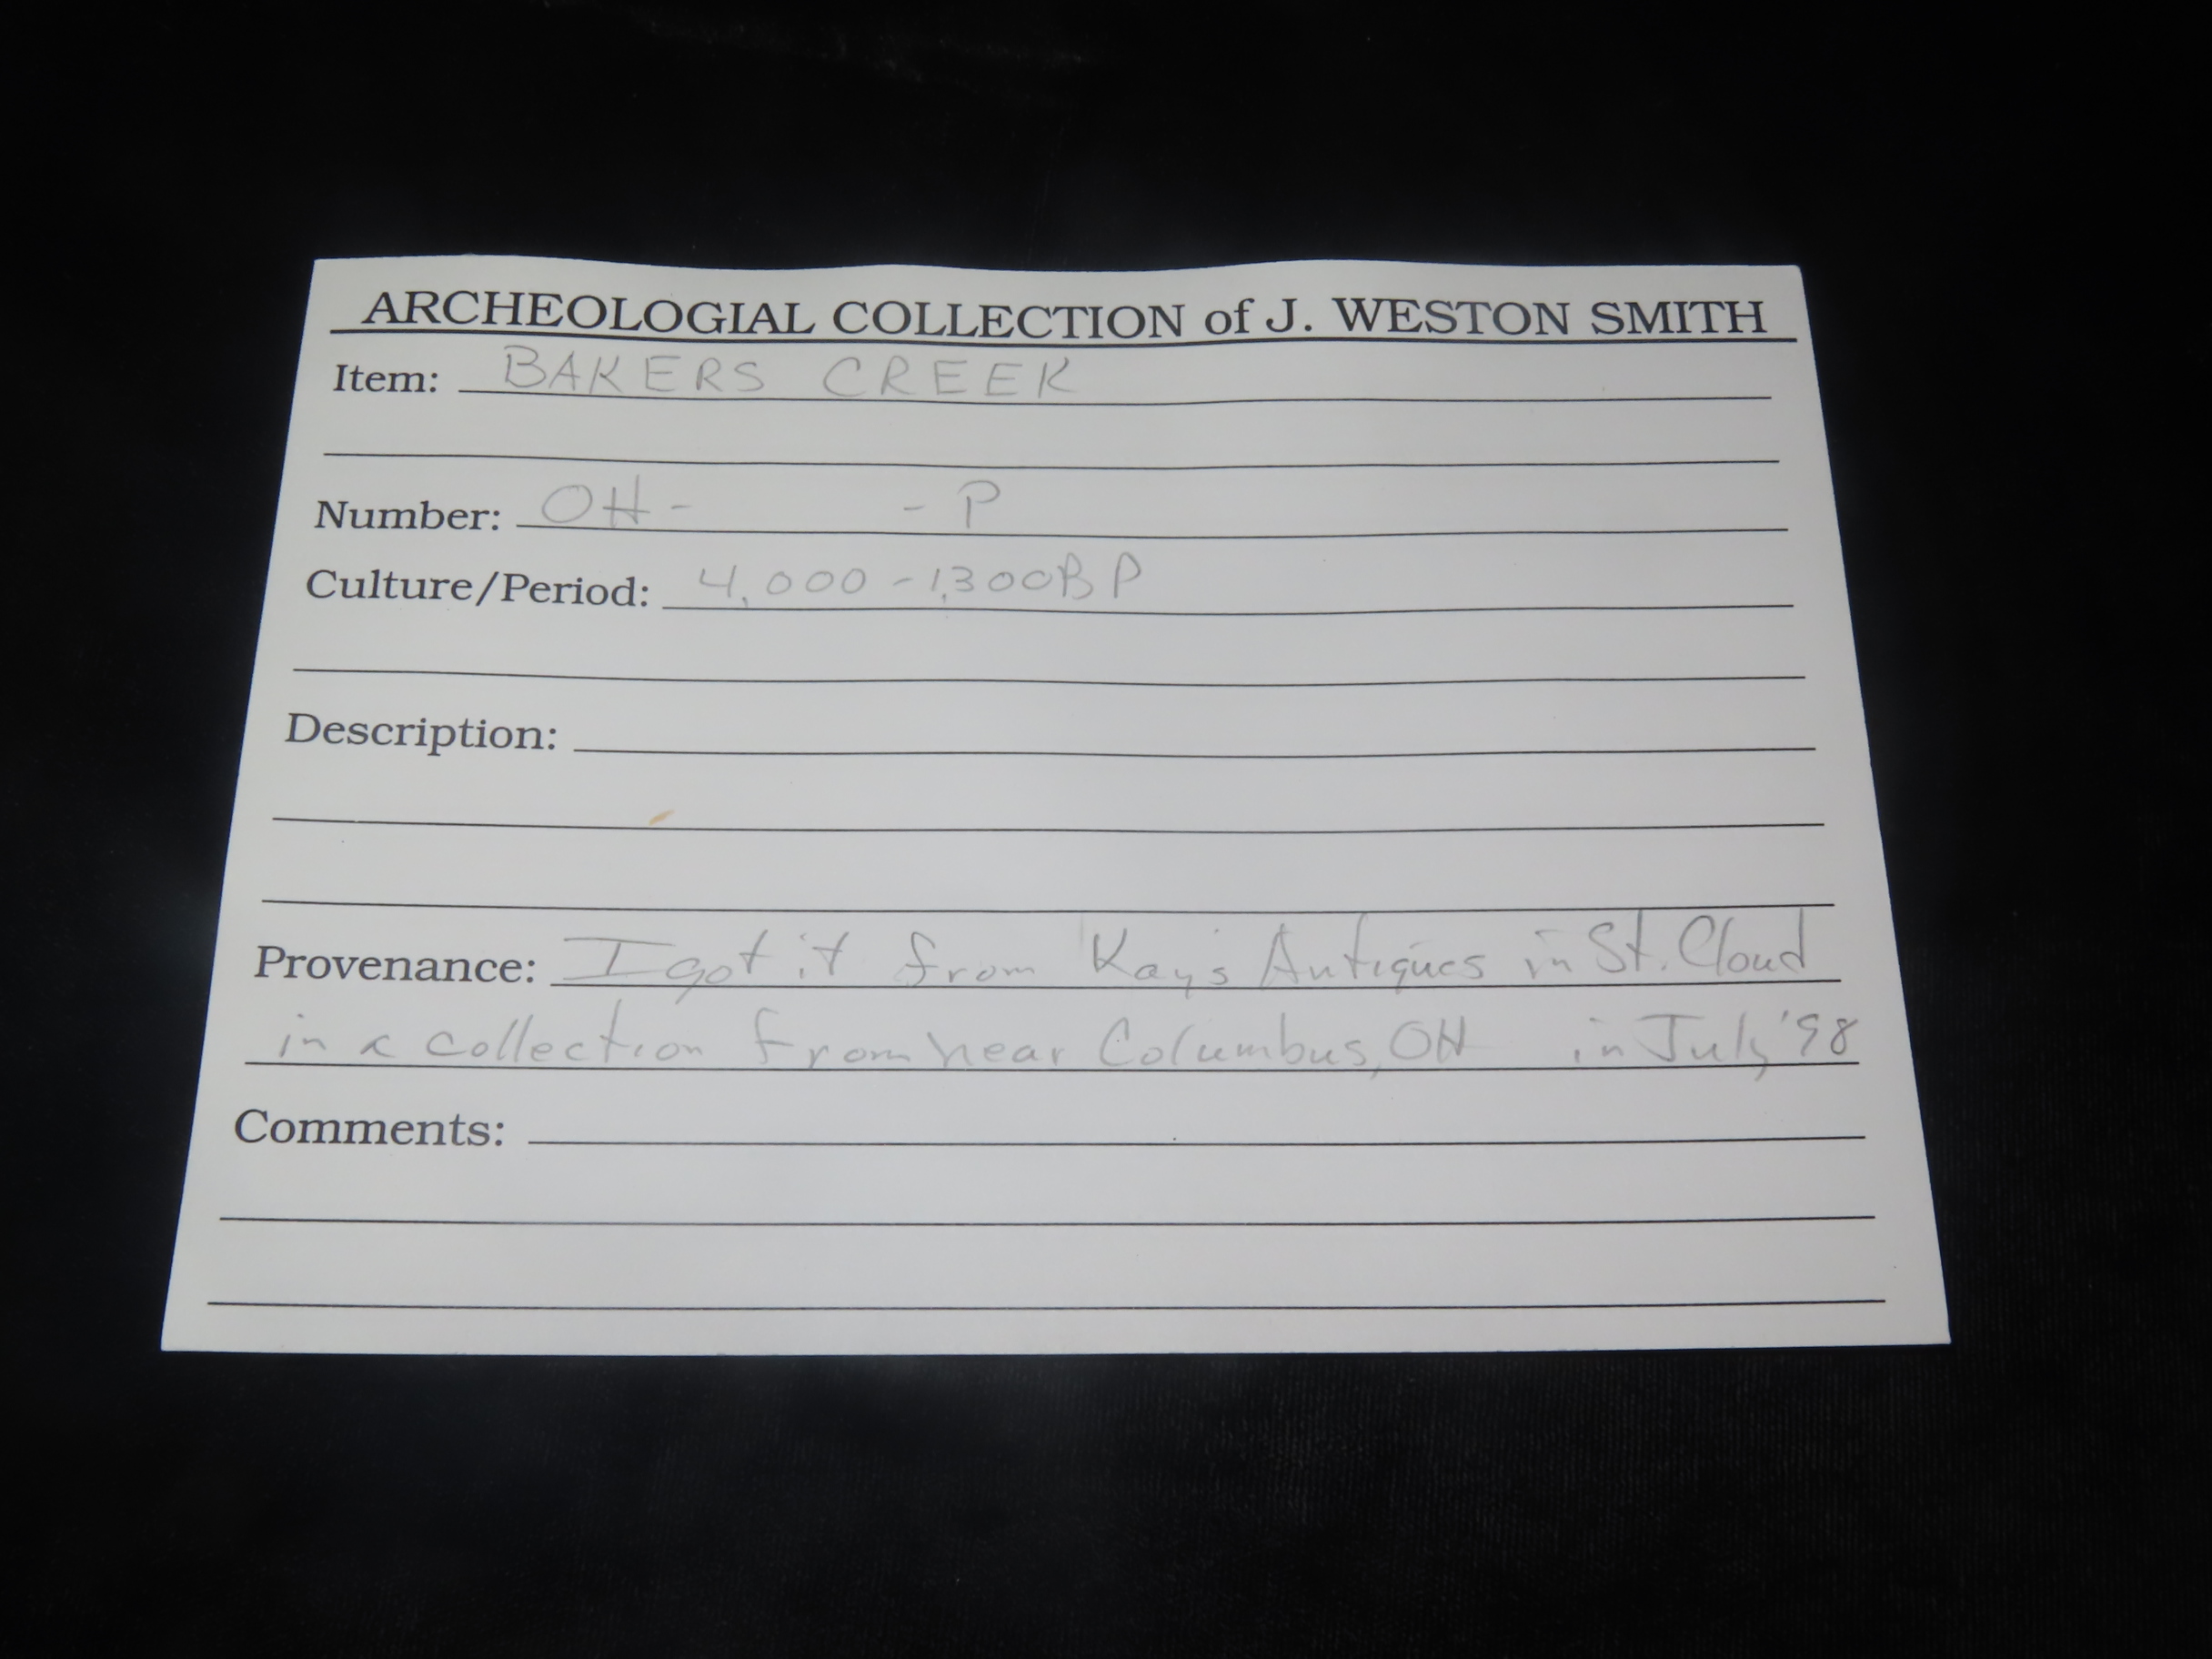 ARCHEOLOGIAL COLLECTION of J. WESTON SMITH
Item: BAKERS CREEK
Number: OH- - P
Culture/Period: 4,000 - 1,300 BP
Description:
Provenance: I got it from Kay's Antiques in St. Cloud
in a collection from near Columbus, OH in July '98
Comments: